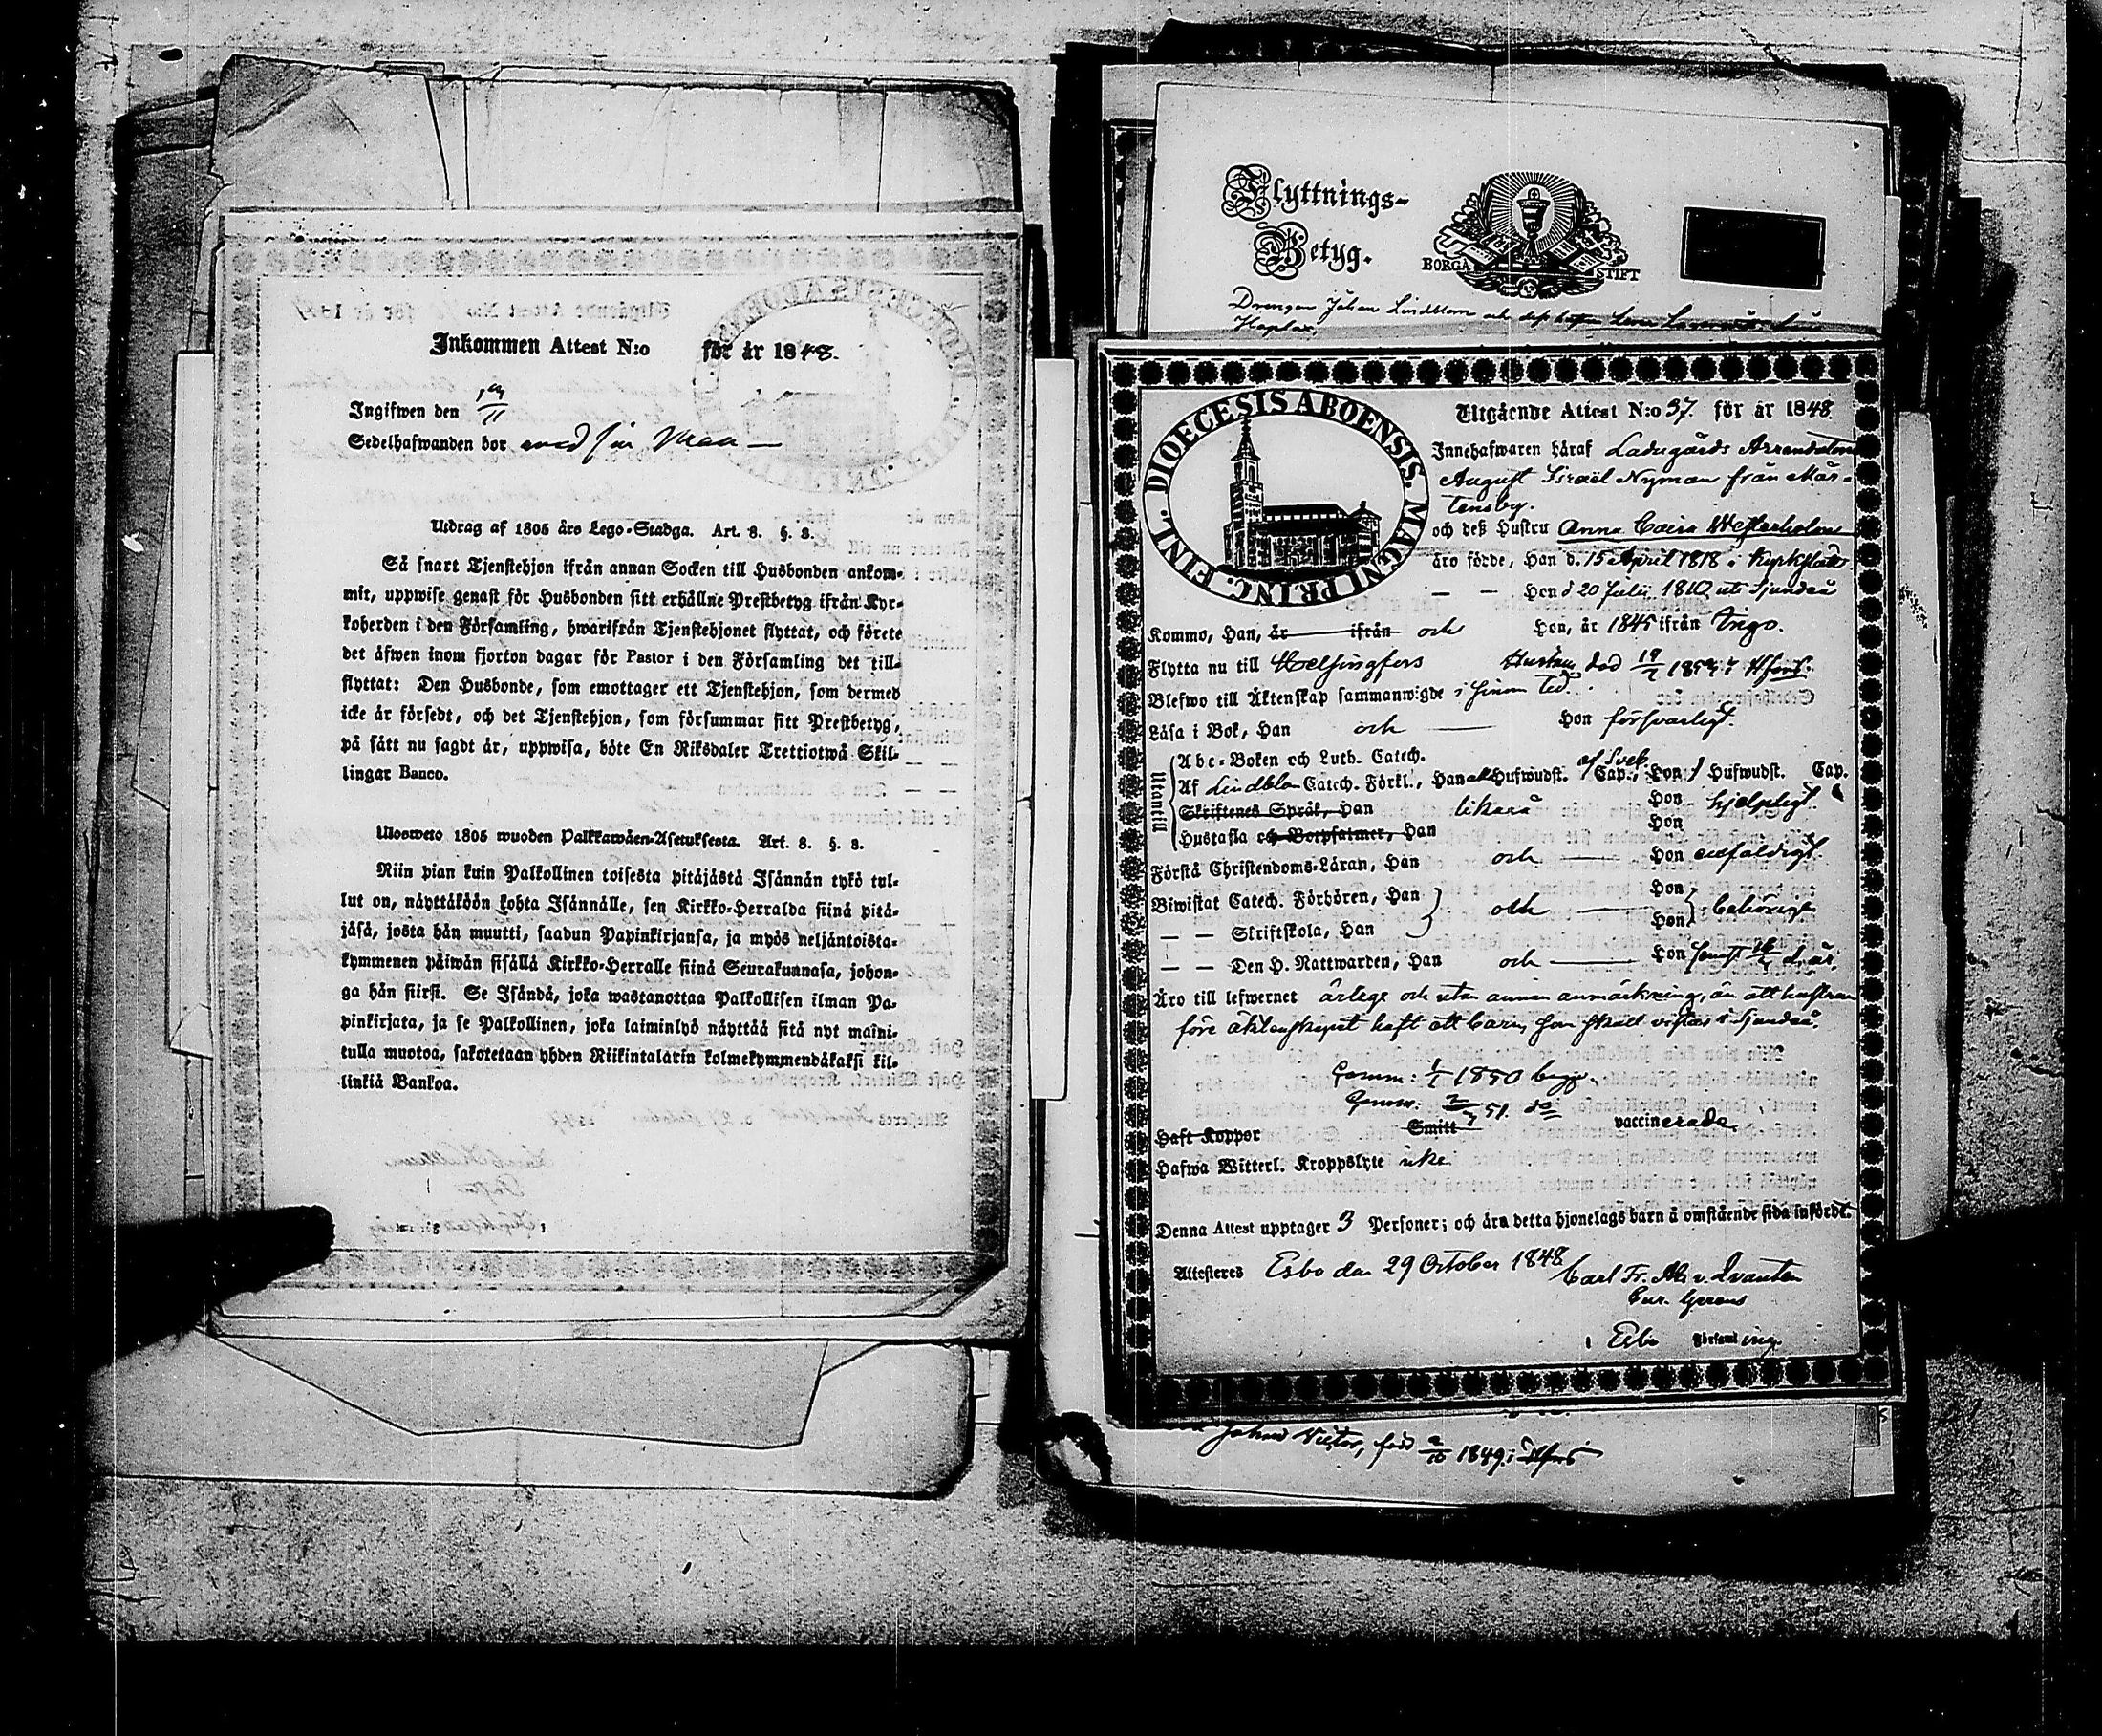 Inkommen Attest N:o för år 1848.
Ingifwen den
Sedelhafwanden bor med sin Man —
Utdrag af 1805 års Lego-Stadga. Art. 8. §. 8.
Så snart Tjenstehjon ifrån annan Socken till Husbonden ankom-
mit, uppwise genast för Husbonden sitt erhållne Prestbetyg ifrån Kyr-
koherden i den Församling, hwarifrån Tjenstehjonet flyttat, och förete
det äfwen inom fjorton dagar för Pastor i den Församling det till-
flyttat: Den Husbonde, som emottager ett Tjenstehjon, som dermed
icke är försedt, och det Tjenstehjon, som försummar sitt Prestbetyg,
på sätt nu sagdt är, uppwisa, böte En Riksdaler Trettiotwå Skil-
lingar Banco.
Ulosweto 1805 wuoden Palkkawäen-Asetuksesta. Art. 8. §. 8.
Niin pian kuin Palkollinen toisesta pitäjästä Isännän tykö tul-
lut on, näyttäköön kohta Isännälle, sen Kirkko-Herralda siinä pitä-
jäsä, josta hän muutti, saadun Papinkirjansa, ja myös neljäntoista-
kymmenen päiwän sisällä Kirkko-Herralle siinä Seurakunnasa, johon-
ga hän siirsi. Se Isändä, joka wastanottaa Palkollisen ilman Pa-
pinkirjata, ja se Palkollinen, joka laiminlyö näyttää sitä nyt maini-
tulla muotoa, sakotetaan yhden Riikintalarin kolmekymmendäkaksi kil-
linkiä Bankoa.
Flyttnings-
Betyg.
BORGÅ STIFT
Drengen Johan Lindblom och dess hustru
Hoplax
DIOECESIS ABOENSIS. MAGNI PRINC. FINL.
Utgående Attest N:o 37. för år 1848.
Innehafwaren häraf Ladugårds Arrendatorn
August Israël Nyman från Mår-
tensby.
och deß Hustru Anna Caisa Westerholm
äro födde, Han d. 15 April 1818 i Kyrkslätt
— — Hon d 20 Julii 1810 uti Sjundeå
Kommo, Han, är ifrån och Hon, år 1845 ifrån Ingo.
Flytta nu till Helsingfors Hustrun död
Blefwo till Äktenskap sammanwigde i sinom tid.
Läsa i Bok, Han och — Hon försvarligt.
Utantill
Abc-Boken och Luth. Catech. af Sveb.
Af Lindblom Catech. Förkl., Han alla Hufwudst. Cap., Hon 1 Hufwudst. Cap.
Skriftenes Språk, Han likaså Hon hjelpligt.
Hustafla och Botpsalmer, Han Hon
Första Christendoms-Läran, Han och — Hon enfaldigt.
Biwistat Catech. Förhören, Han och — Hon behörigt
— — Skriftskola, Han Hon
— — Den H. Nattwarden, Han och — Hon senast d. år.
Äro till lefwernet ärlige och utan annan anmärkning, än att hustrun
före äktenskapet haft ett barn, som skall vistas i Sjundeå.
Comm: 1/1 1850 begge.
Comm: 51. do
Haft Koppor Smitt vaccinerade.
Hafwa Witterl. Kroppslyte icke
Denna Attest upptager 3 Personer; och äro detta hjonelags barn å omstående sida införde.
Attesteres Esbo den 29 October 1848
Carl Fr.
Cur. Gerens
i Esbo Församling.
Johan Victor, född 1849 i Hfors